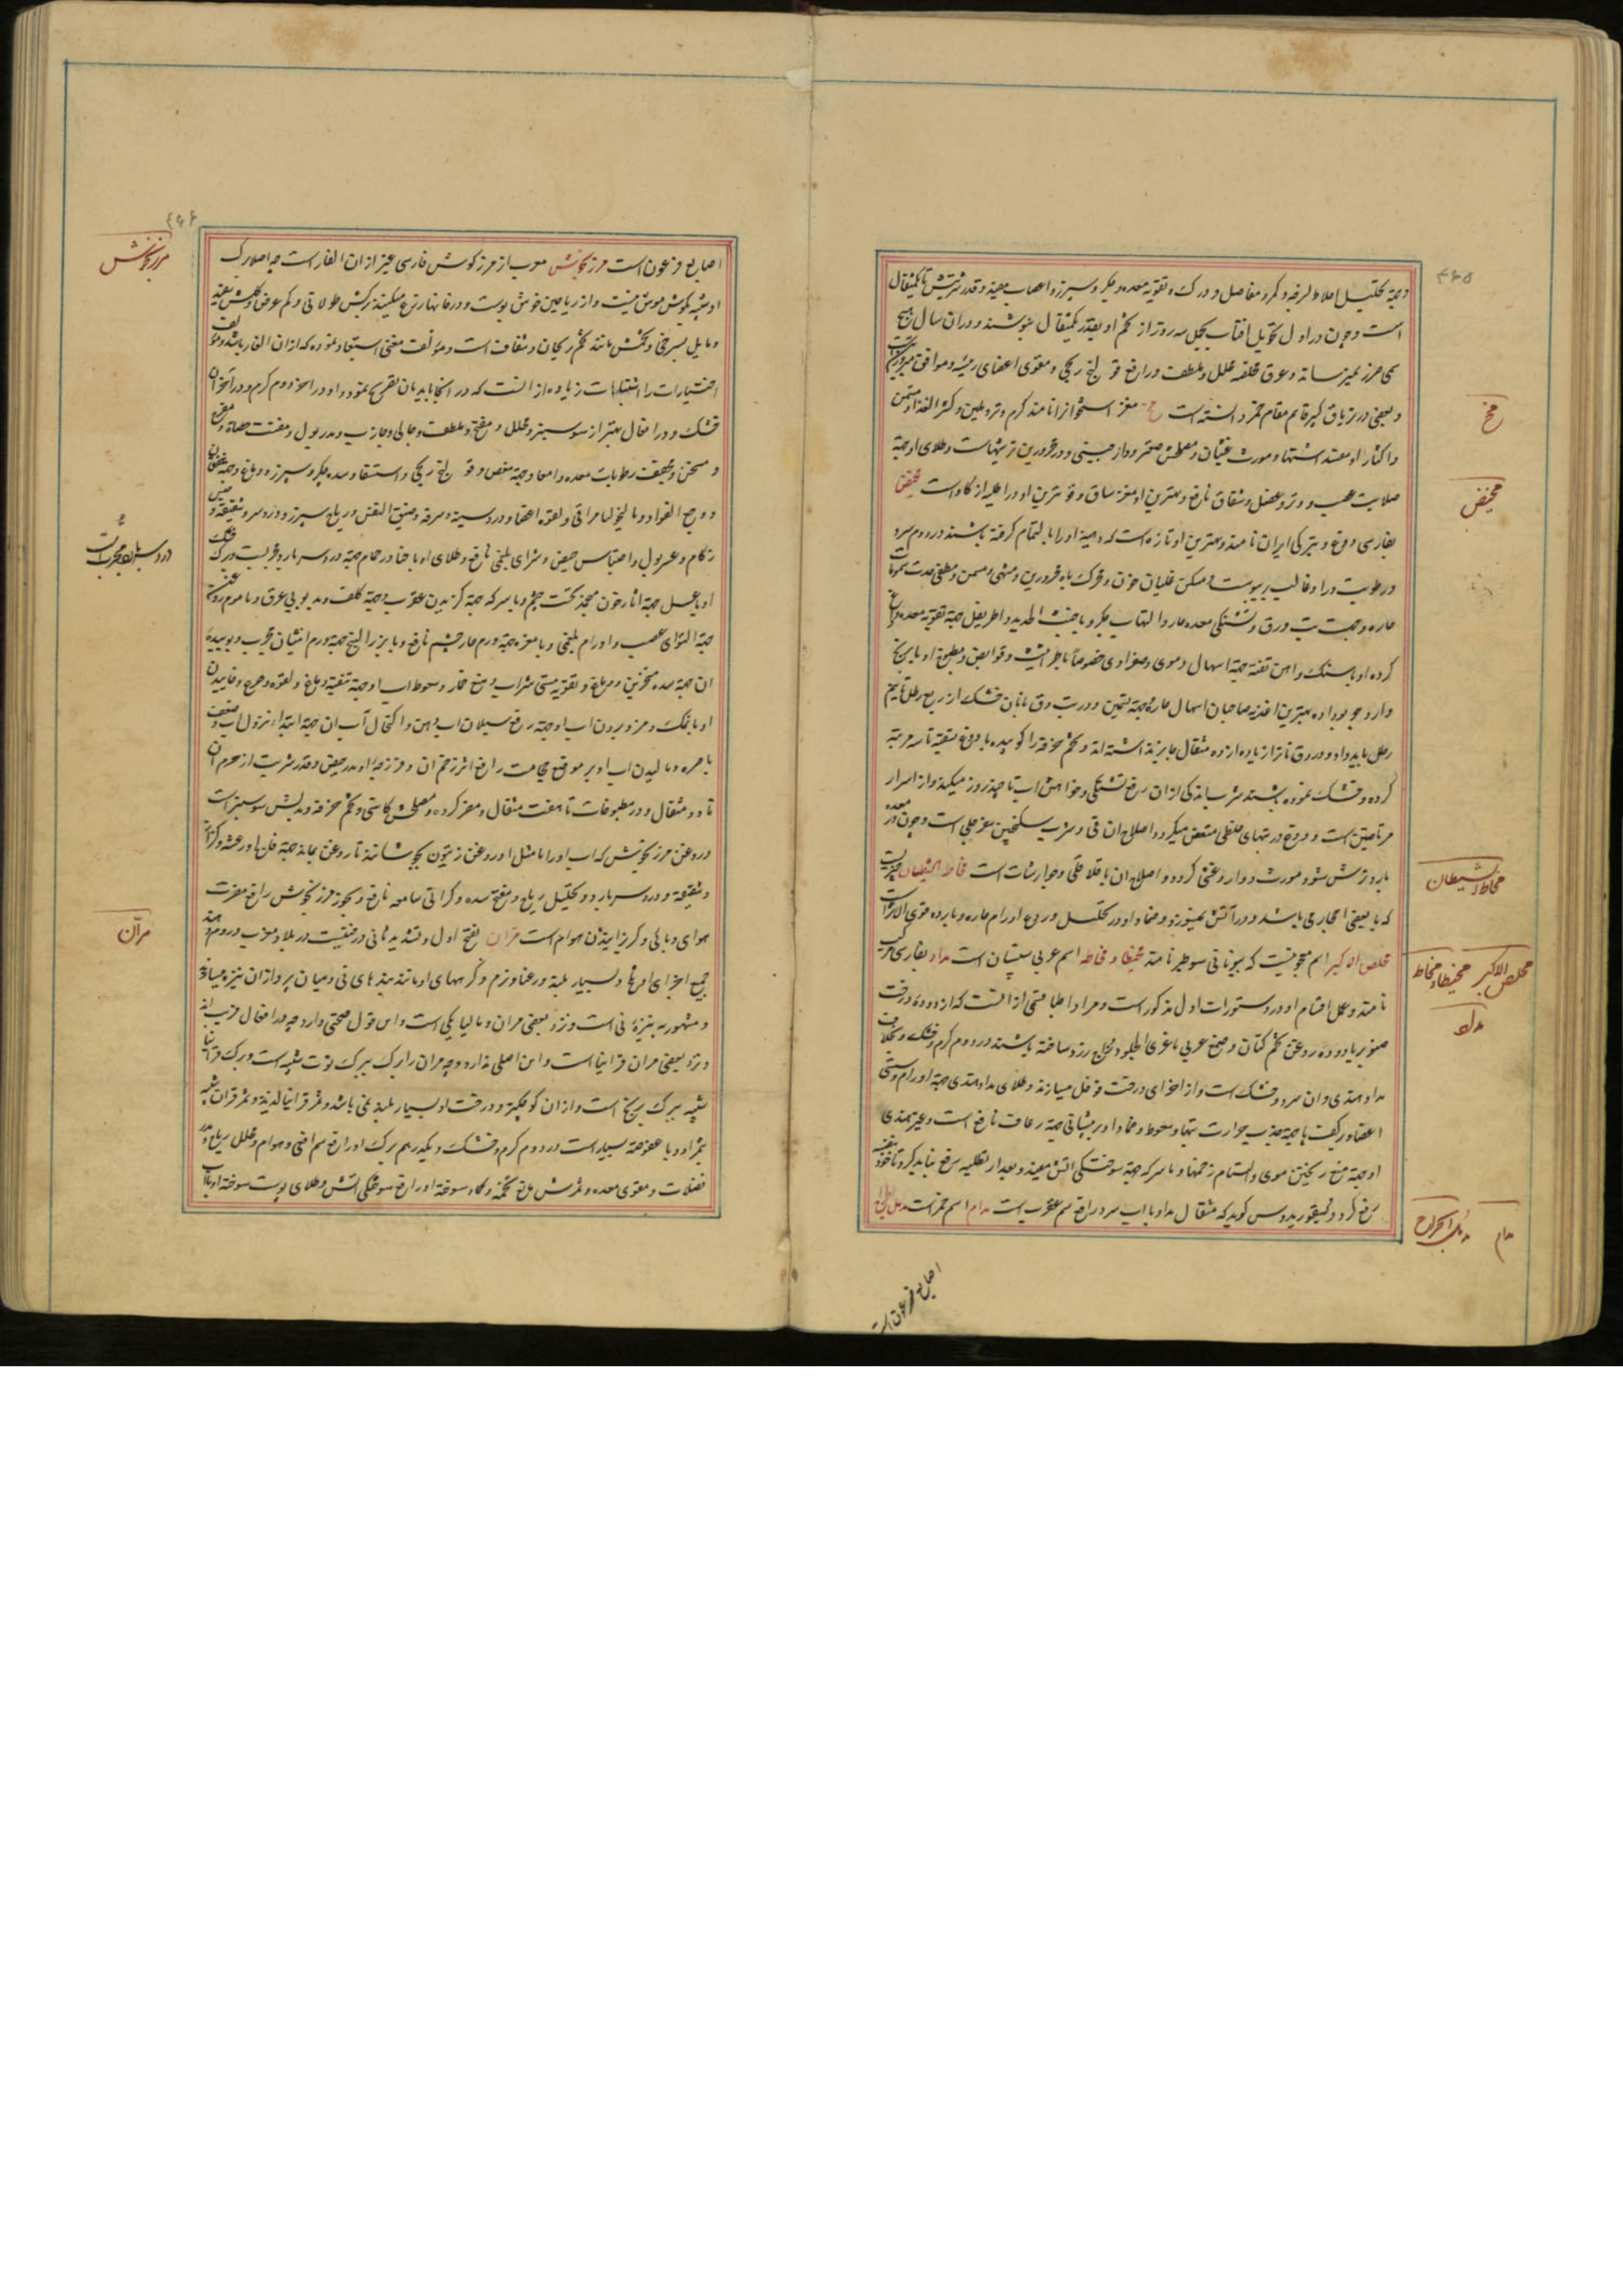 ۴۶۵
و جهة تحلیل اخلاط لزجه و درد مفاصل و ورک و تقویة معده و جگر و سپرز و اعصاب مفید و قدر شربتش تا یکمثقال
است و چون در اول تحویل آفتاب بحمل سه روز از تخم او بقدر یکمثقال بنوشند در آن سال هیچ
سمی ضرر نمیرساند و عرق محلل و ملطف و رافع قولنج ریحی و مقوی اعضای رئیسه و موافق مبرودین است
و بعضی در تریاق کبیر قایم مقام خمر دانسته است مخ مغز استخوانرا نامند گرم و تر و ملین و کثیر الغذا و مسمن
و اکثار او مفسد اشتها و مورث غثیان و مصلحش صعتر و دارچینی و در محرورین ترشیهاست و طلای او جهة
صلابت عصب و وتر و عضل و شقاق نافع و بهترین او مغز ساق و قویترین او در اطلیه از گاو است مخیض
بفارسی دوغ و بترکی ایران نامند و بهترین او تازه است که دهنیة او را بالتمام گرفته باشند در دوم سرد
و رطوبت در او غالب بر یبوست و مسکن غلیان خون و محرک باه محرورین و مشهی و مسمن و مطفی حدت سموم
حاره و جهت تب دق و تشنگی معده حار و التهاب جگر و با خبث الحدید و اطریفل جهة تقویة معده و داغ
کرده او با سنگ و آهن تفته جهة اسهال دموی و صفراوی خصوصا با طراثیث و قوابض و مطبوخ او با برنج
و ارد جو بو داده بهترین اغذیه صاحبان اسهال حاره جهة تسمین و در تب دق با نان خشک از ربع رطل تا نیم
رطل باید داد و در دق نان را زیاده از ده مثقال جایز ندانسته اند و تخم خرفه را کوبیده با دوغ تسقیه تا سه مرتبه
کرده و خشک نموده باشند شرب اندکی از ان رفع تشنگی و خواهش آب تا چند روز میکند و از اسرار
مرتاضین است و دوغ در تبهای خلطی متعفن میگردد و اصلاح ان قی و شرب سکنجبین سفرجلی است و چون در معده
بارد ترش شود مورث دوار و غشی گردد و اصلاح ان با فلافلی و جوارشات است مخاط الشیطان چیزیست
که با بعضی احجار می باشد و در آتش نمیسوزد و ضماد او در تحلیل و ردع اورام حاره و بارده قوی الاثر است
مخلص الاکبر اسم معجونیست که بیونانی سوطیرا نامند مخیطا و مخاطه اسم عربی سپستان است مداد بفارسی مرکب
نامند و عمل اقسام او در دستورات اول مذکور است و مراد اطبا قسمی از انست که از دوده درخت
صنوبر یا دوده روغن تخم کتان و صمغ عربی یا غری الجلود و زاج زرد ساخته باشند در دوم گرم و خشک و بخلاف
مداد هندی و ان سرد و خشک است و از اجزای درخت فوفل میسازند و طلای مداد هندی جهة اورام و سستی
اعضا و بر کف پا جهة جذب حرارت تبها و سعوط و ضماد او بر پیشانی جهة رعاف نافع است و غیر هندی
او جهة منع ریختن موی و التیام زخمها و با سرکه جهة سوختگی آتش مفید و بعد از تطلیه رفع نباید کرد تا خود بنفسه
رفع گردد و دیسقوریدوس گوید که مثقال مداد با آب سرد رافع سم عقرب است مدام اسم خمر است
مخ
مخیض
مخاط الشیطان
مخلص الاکبر مخیطا و مخاطه
مداد
مدام
اصابع فرعون است
۴۶۶
اصابع فرعون است مرزنجوش معرب از مرزنکوش فارسی غیر از اذان الفار است چه اصلا برگ
او شبیه بگوش موش نیست و از ریاحین خوش بوست و در خانها زرع میکنند برگش طولانی و کم عرض و گلش سفید
و مایل بسرخی و تخمش مانند تخم ریحان و شفاف است و مؤلف مغنی استبعاد نموده که اذان الفار باشد و مؤلف
اختیارات را اشتباهات زیاده از انست که در اینجا باید بان تصریح نمود و او در آخر دوم گرم و در آخر آن
خشک و در افعال بهتر از سوسنبر و محلل و مفتح و ملطف و جالی و جاذب و مدر بول و مفتت حصاة و مفرح
و مسخن و مجفف رطوبات معده و امعا و جهة مغص و قولنج ریحی و استسقا و سده جگر و سپرز و دماغ و جهة خفقان
و وجع الفواد و مالیخولیا مراقی و لقوه اعضا و درد سینه و سرفه و ضیق النفس و ریاح سپرز و درد سر و شقیقه و حبس
زکام و عسر بول و احتباس حیض و شرای بلغمی نافع و طلای او با حنا در حمام جهة درد سر بارد مجربست و برگ خشک
او با عسل جهة آثار خون منجمد تحت چشم و با سرکه جهة گزیدن عقرب و جهة کلف و بدبویی عرق و با موم روغن
جهة التوای عصب و اورام بلغمی و با مغزه جهة ورم حار چشم نافع و با بزر البنج جهة ورم انثیان مجرب و بوییدن
ان جهة سده منخرین و دماغ و تقویة مستی شراب و منع خمار و سعوط آب او جهة تنقیه دماغ و لقوه و صرع و خاییدن
او با نمک و فرو بردن آب او جهة رفع سیلان آب دهن و اکتحال آب ان جهة ابتداء نزول آب و ضعف
باصره و مالیدن آب او بر موقع حجامت رافع اثر زخم ان و فرزجه او مدر حیض و قدر شربت از جرم آن
تا دو مثقال و در مطبوخات تا هفت مثقال و مضر گرده و مصلحش کاسنی و تخم خرفه و بدلش سوسنبر است
و روغن مرزنجوش که آب او را با مثل او روغن زیتون بجوشانند تا روغن بماند جهة فالج و رعشه و کزاز
و شقیقه و درد سر بارد و تحلیل ریاح و مفتح سده و گرانی سامعه نافع و بخور مرزنجوش رافع مضرت
هوای وبائی و گریزانیدن هوام است مران بفتح اول و تشدید ثانی درختیست در بلاد مغرب و روم و هند
جمیع اجزای او رخا و بسیار بلند و رعنا و نرم و گرههای او مانند بندهای نی و میان پر و از ان نیزه میسازند
و مشهور به نیزه نی است و نزد بعضی مران و مالیا یکی است و این قول صحتی دارد چه در افعال قریب اند
و نزد بعضی مران قرانیا است و این اصلی ندارد و چه مران را برگ ببرگ توت شبیه است و برگ قرانیا
شبیه ببرگ برنج است و از ان کوچکتر و درخت او بسیار بلند نمی باشد و ثمر قرانیا لذیذ و ثمر مران شبیه
بثمر او و با عفوصة بسیار است در دوم گرم و خشک و یکدرهم برگ او رافع سم افعی و هوام و محلل ریاح و
فضلات و مقوی معده و ثمرش مانع تخمه و کاه سوخته او رافع سوختگی آتش و طلای پوست سوخته او با آب
مرزنجوش
مران